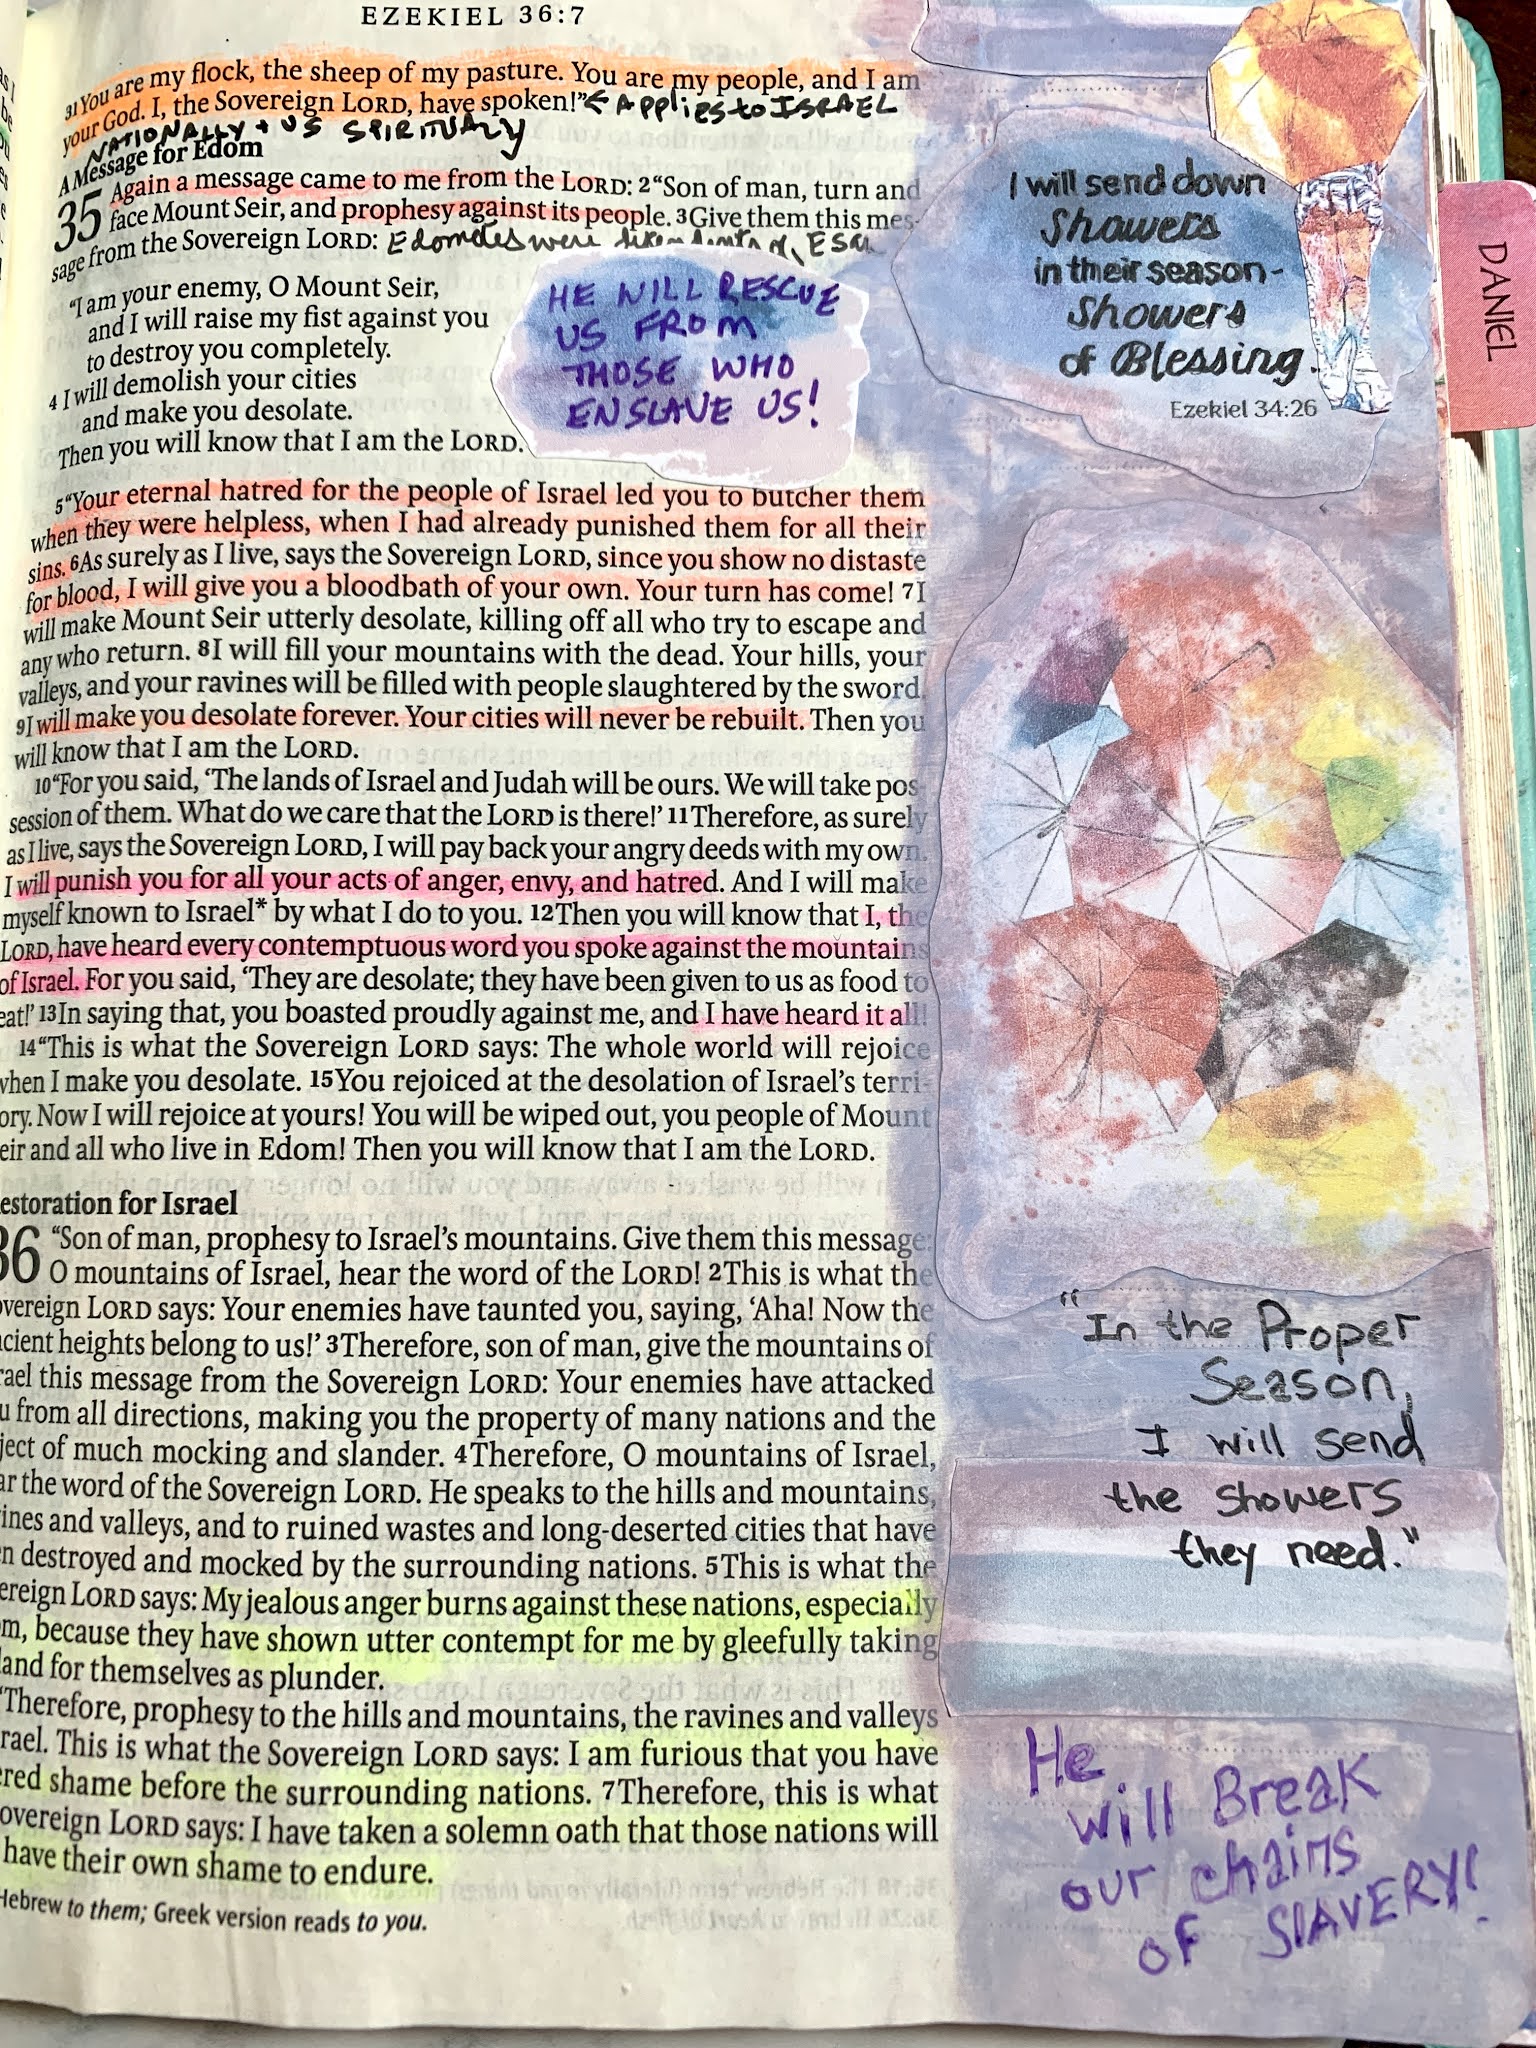 EZEKIEL 36:7
31 You are my flock, the sheep of my pasture. You are my people, and I am
your God. I, the Sovereign LORD, have spoken!” ← Applies to ISRAEL
NATIONALLY + US SPIRITUALY
A Message for Edom
35 Again a message came to me from the LORD: 2 “Son of man, turn and
face Mount Seir, and prophesy against its people. 3 Give them this mes-
sage from the Sovereign LORD: Edomites were
“I am your enemy, O Mount Seir,
and I will raise my fist against you
to destroy you completely.
4 I will demolish your cities
and make you desolate.
Then you will know that I am the LORD.
HE WILL RESCUE
US FROM
THOSE WHO
ENSLAVE US!
5 “Your eternal hatred for the people of Israel led you to butcher them
when they were helpless, when I had already punished them for all their
sins. 6 As surely as I live, says the Sovereign LORD, since you show no distaste
for blood, I will give you a bloodbath of your own. Your turn has come! 7 I
will make Mount Seir utterly desolate, killing off all who try to escape and
any who return. 8 I will fill your mountains with the dead. Your hills, your
valleys, and your ravines will be filled with people slaughtered by the sword.
9 I will make you desolate forever. Your cities will never be rebuilt. Then you
will know that I am the LORD.
10 “For you said, ‘The lands of Israel and Judah will be ours. We will take pos-
session of them. What do we care that the LORD is there!’ 11 Therefore, as surely
as I live, says the Sovereign LORD, I will pay back your angry deeds with my own.
I will punish you for all your acts of anger, envy, and hatred. And I will make
myself known to Israel* by what I do to you. 12 Then you will know that I, the
LORD, have heard every contemptuous word you spoke against the mountains
of Israel. For you said, ‘They are desolate; they have been given to us as food to
eat!’ 13 In saying that, you boasted proudly against me, and I have heard it all!
14 “This is what the Sovereign LORD says: The whole world will rejoice
when I make you desolate. 15 You rejoiced at the desolation of Israel’s terri-
ory. Now I will rejoice at yours! You will be wiped out, you people of Mount
eir and all who live in Edom! Then you will know that I am the LORD.
estoration for Israel
36 “Son of man, prophesy to Israel’s mountains. Give them this message:
O mountains of Israel, hear the word of the LORD! 2 This is what the
overeign LORD says: Your enemies have taunted you, saying, ‘Aha! Now the
cient heights belong to us!’ 3 Therefore, son of man, give the mountains of
rael this message from the Sovereign LORD: Your enemies have attacked
u from all directions, making you the property of many nations and the
ject of much mocking and slander. 4 Therefore, O mountains of Israel,
ar the word of the Sovereign LORD. He speaks to the hills and mountains,
ines and valleys, and to ruined wastes and long-deserted cities that have
n destroyed and mocked by the surrounding nations. 5 This is what the
ereign LORD says: My jealous anger burns against these nations, especially
m, because they have shown utter contempt for me by gleefully taking
land for themselves as plunder.
“Therefore, prophesy to the hills and mountains, the ravines and valleys
rael. This is what the Sovereign LORD says: I am furious that you have
ered shame before the surrounding nations. 7 Therefore, this is what
overeign LORD says: I have taken a solemn oath that those nations will
have their own shame to endure.
Hebrew to them; Greek version reads to you.
I will send down
Showers
in their season-
Showers
of Blessing.
Ezekiel 34:26
DANIEL
“In the Proper
Season,
I will send
the showers
they need.”
He
will Break
our chains
OF SLAVERY!